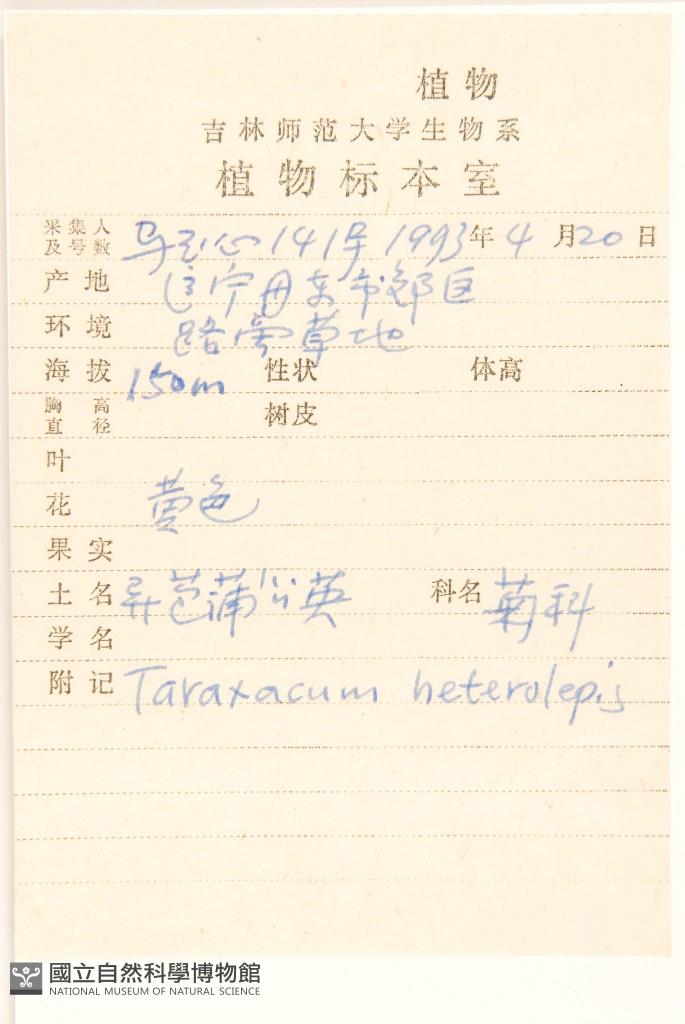 植物
吉林师范大学生物系
植物标本室
采集人及号数 马 心 141号 1993年 4月20日
产地 辽宁丹东市郊区
环境 路旁草地
海拔 150m 性状 体高
胸高直径 树皮
叶
花 黄色
果实
土名 异苞蒲公英 科名 菊科
学名
附记 Taraxacum heterolepis
國立自然科學博物館
NATIONAL MUSEUM OF NATURAL SCIENCE